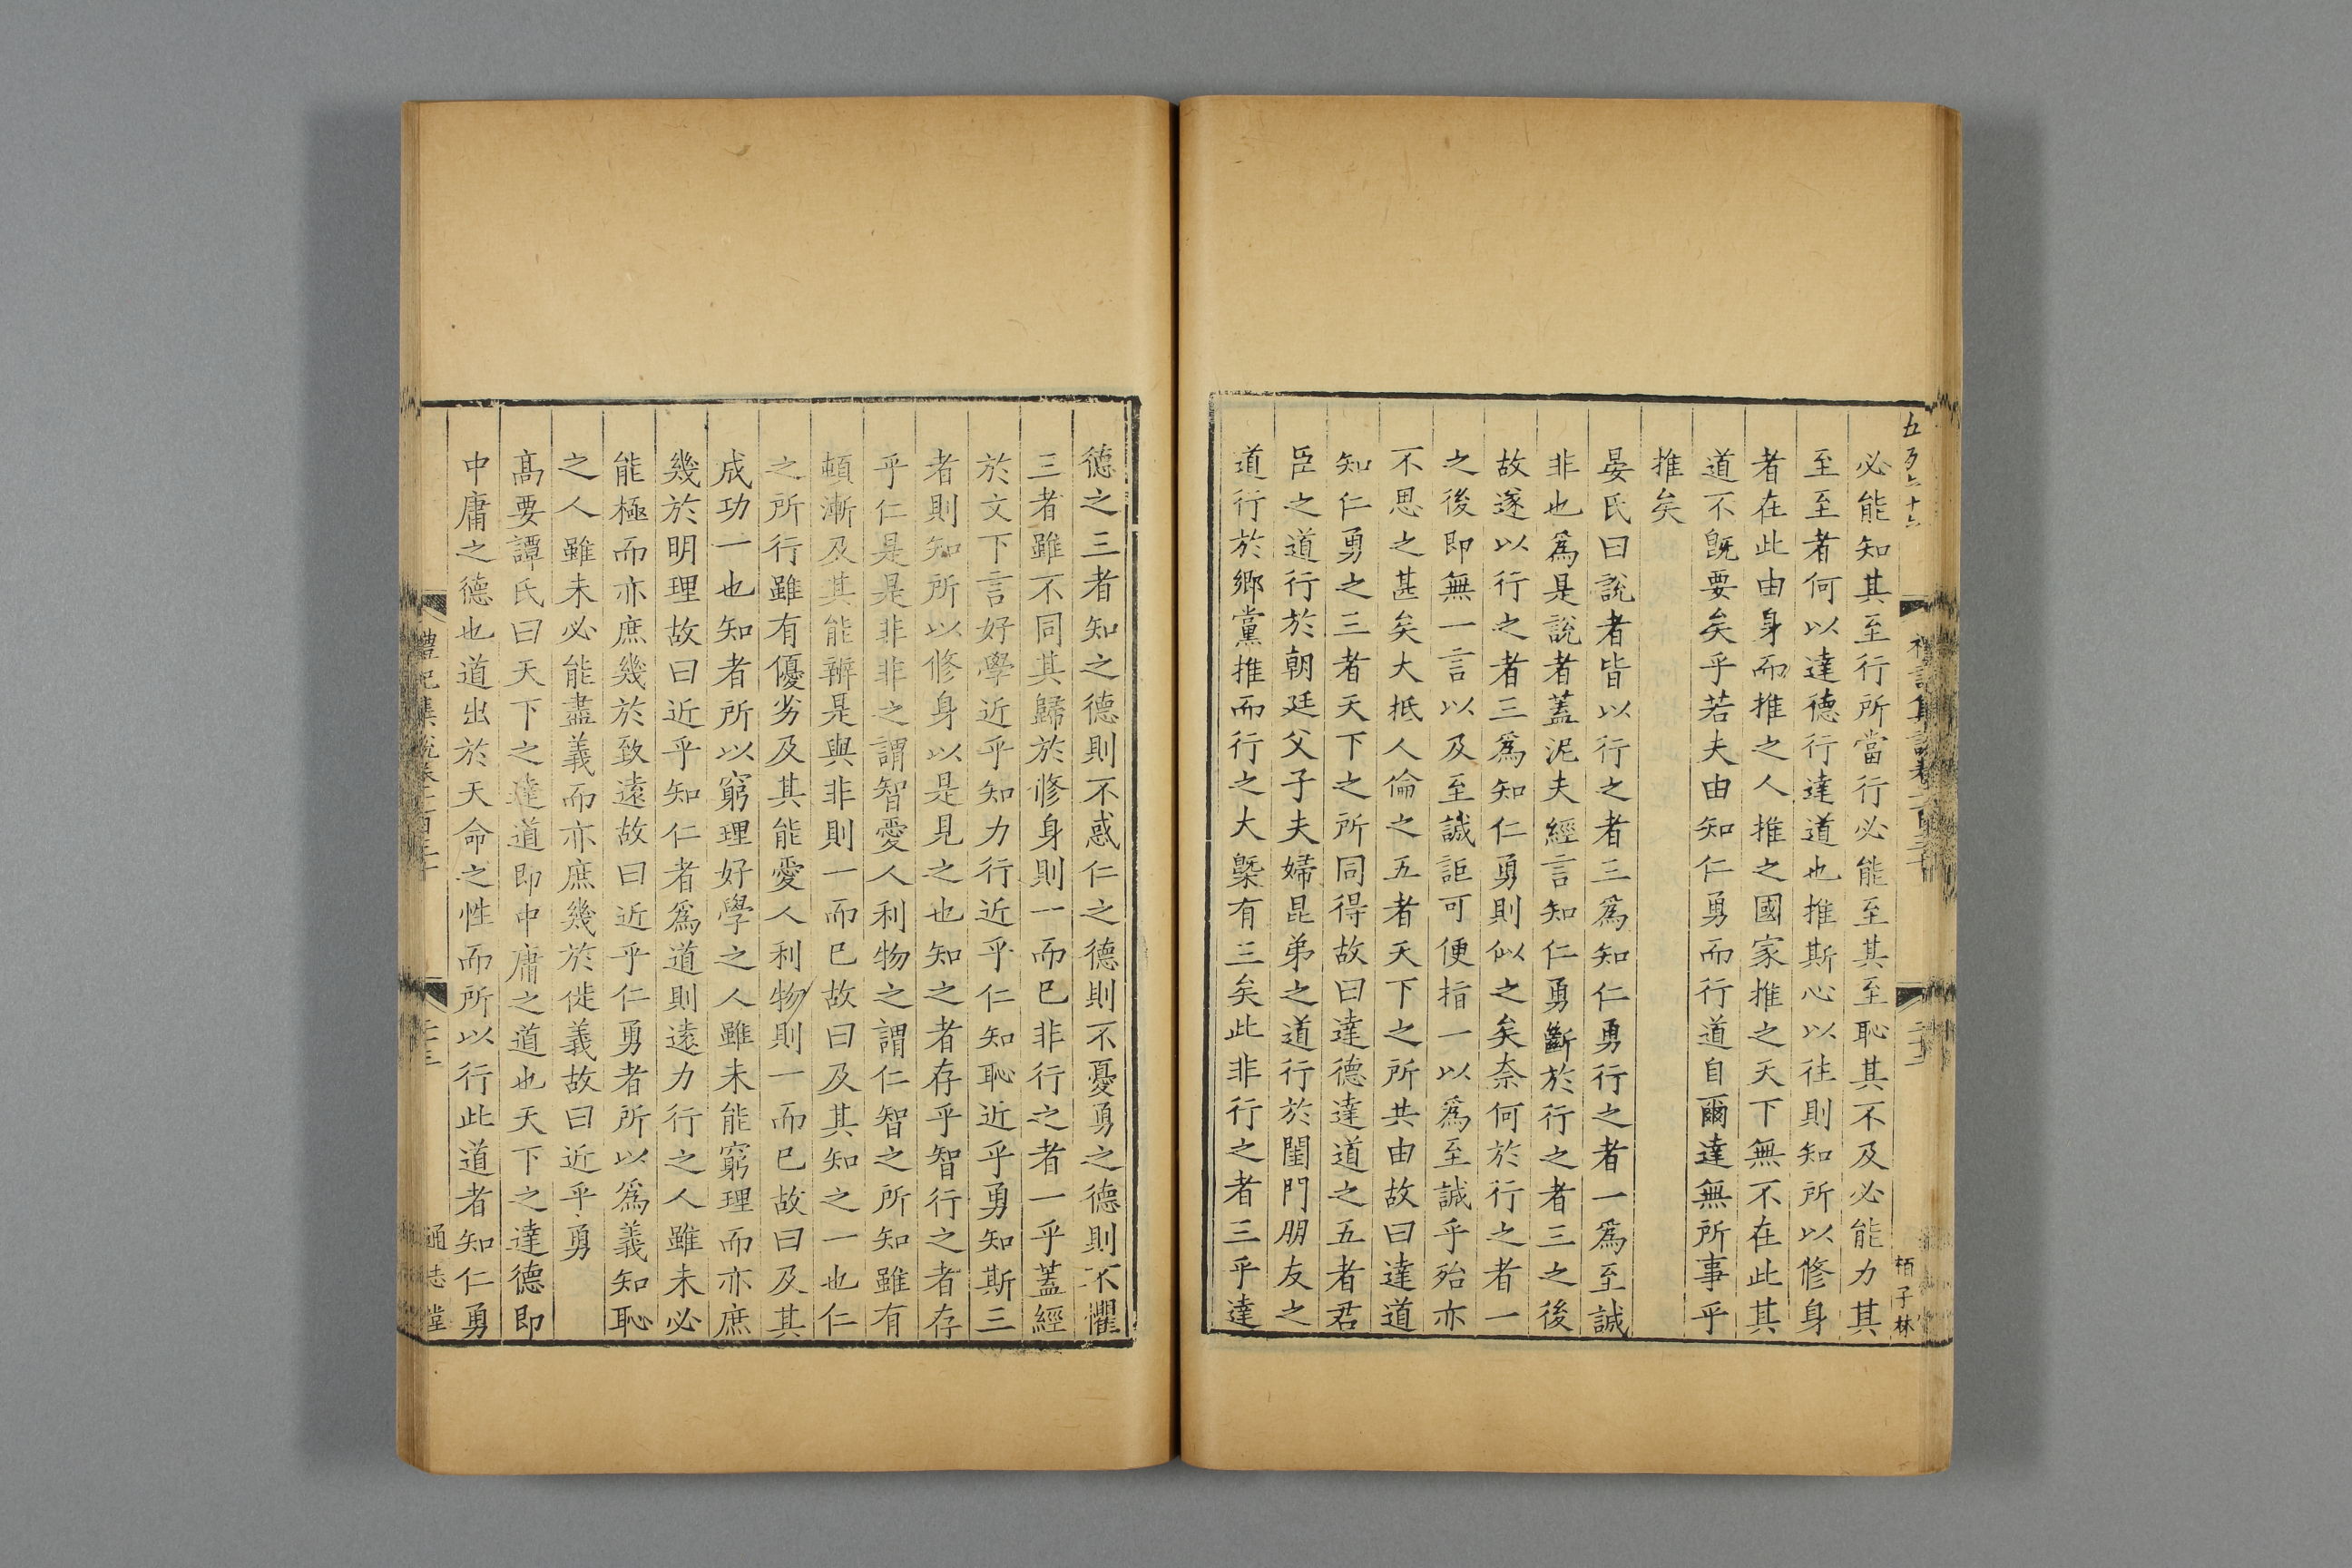 必能知其至行所當行必能至其至恥其不及必能力其
至至者何以達德行達道也推斯心以往則知所以修身
者在此由身而推之人推之國家推之天下無不在此其
道不旣要矣乎若夫由知仁勇而行道自爾達無所事乎
推矣
晏氏曰說者皆以行之者三爲知仁勇行之者一爲至誠
非也爲是說者蓋泥夫經言知仁勇斷於行之者三之後
故遂以行之者三爲知仁勇則似之矣奈何於行之者一
之後即無一言以及至誠詎可便指一以爲至誠乎殆亦
不思之甚矣大抵人倫之五者天下之所共由故曰達道
知仁勇之三者天下之所同得故曰達德達道之五者君
臣之道行於朝廷父子夫婦昆弟之道行於閨門朋友之
道行於鄉黨推而行之大槩有三矣此非行之者三乎達
德之三者知之德則不惑仁之德則不憂勇之德則不懼
三者雖不同其歸於修身則一而已非行之者一乎蓋經
於文下言好學近乎知力行近乎仁知恥近乎勇知斯三
者則知所以修身以是見之也知之者存乎智行之者存
乎仁是是非非之謂智愛人利物之謂仁智之所知雖有
頓漸及其能辨是與非則一而已故曰及其知之一也仁
之所行雖有優劣及其能愛人利物則一而已故曰及其
成功一也知者所以窮理好學之人雖未能窮理而亦庶
幾於明理故曰近乎知仁者爲道則遠力行之人雖未必
能極而亦庶幾於致遠故曰近乎仁勇者所以爲義知恥
之人雖未必能盡義而亦庶幾於徙義故曰近乎勇
高要譚氏曰天下之達道即中庸之道也天下之達德即
中庸之德也道出於天命之性而所以行此道者知仁勇
禮記集說卷
通志堂